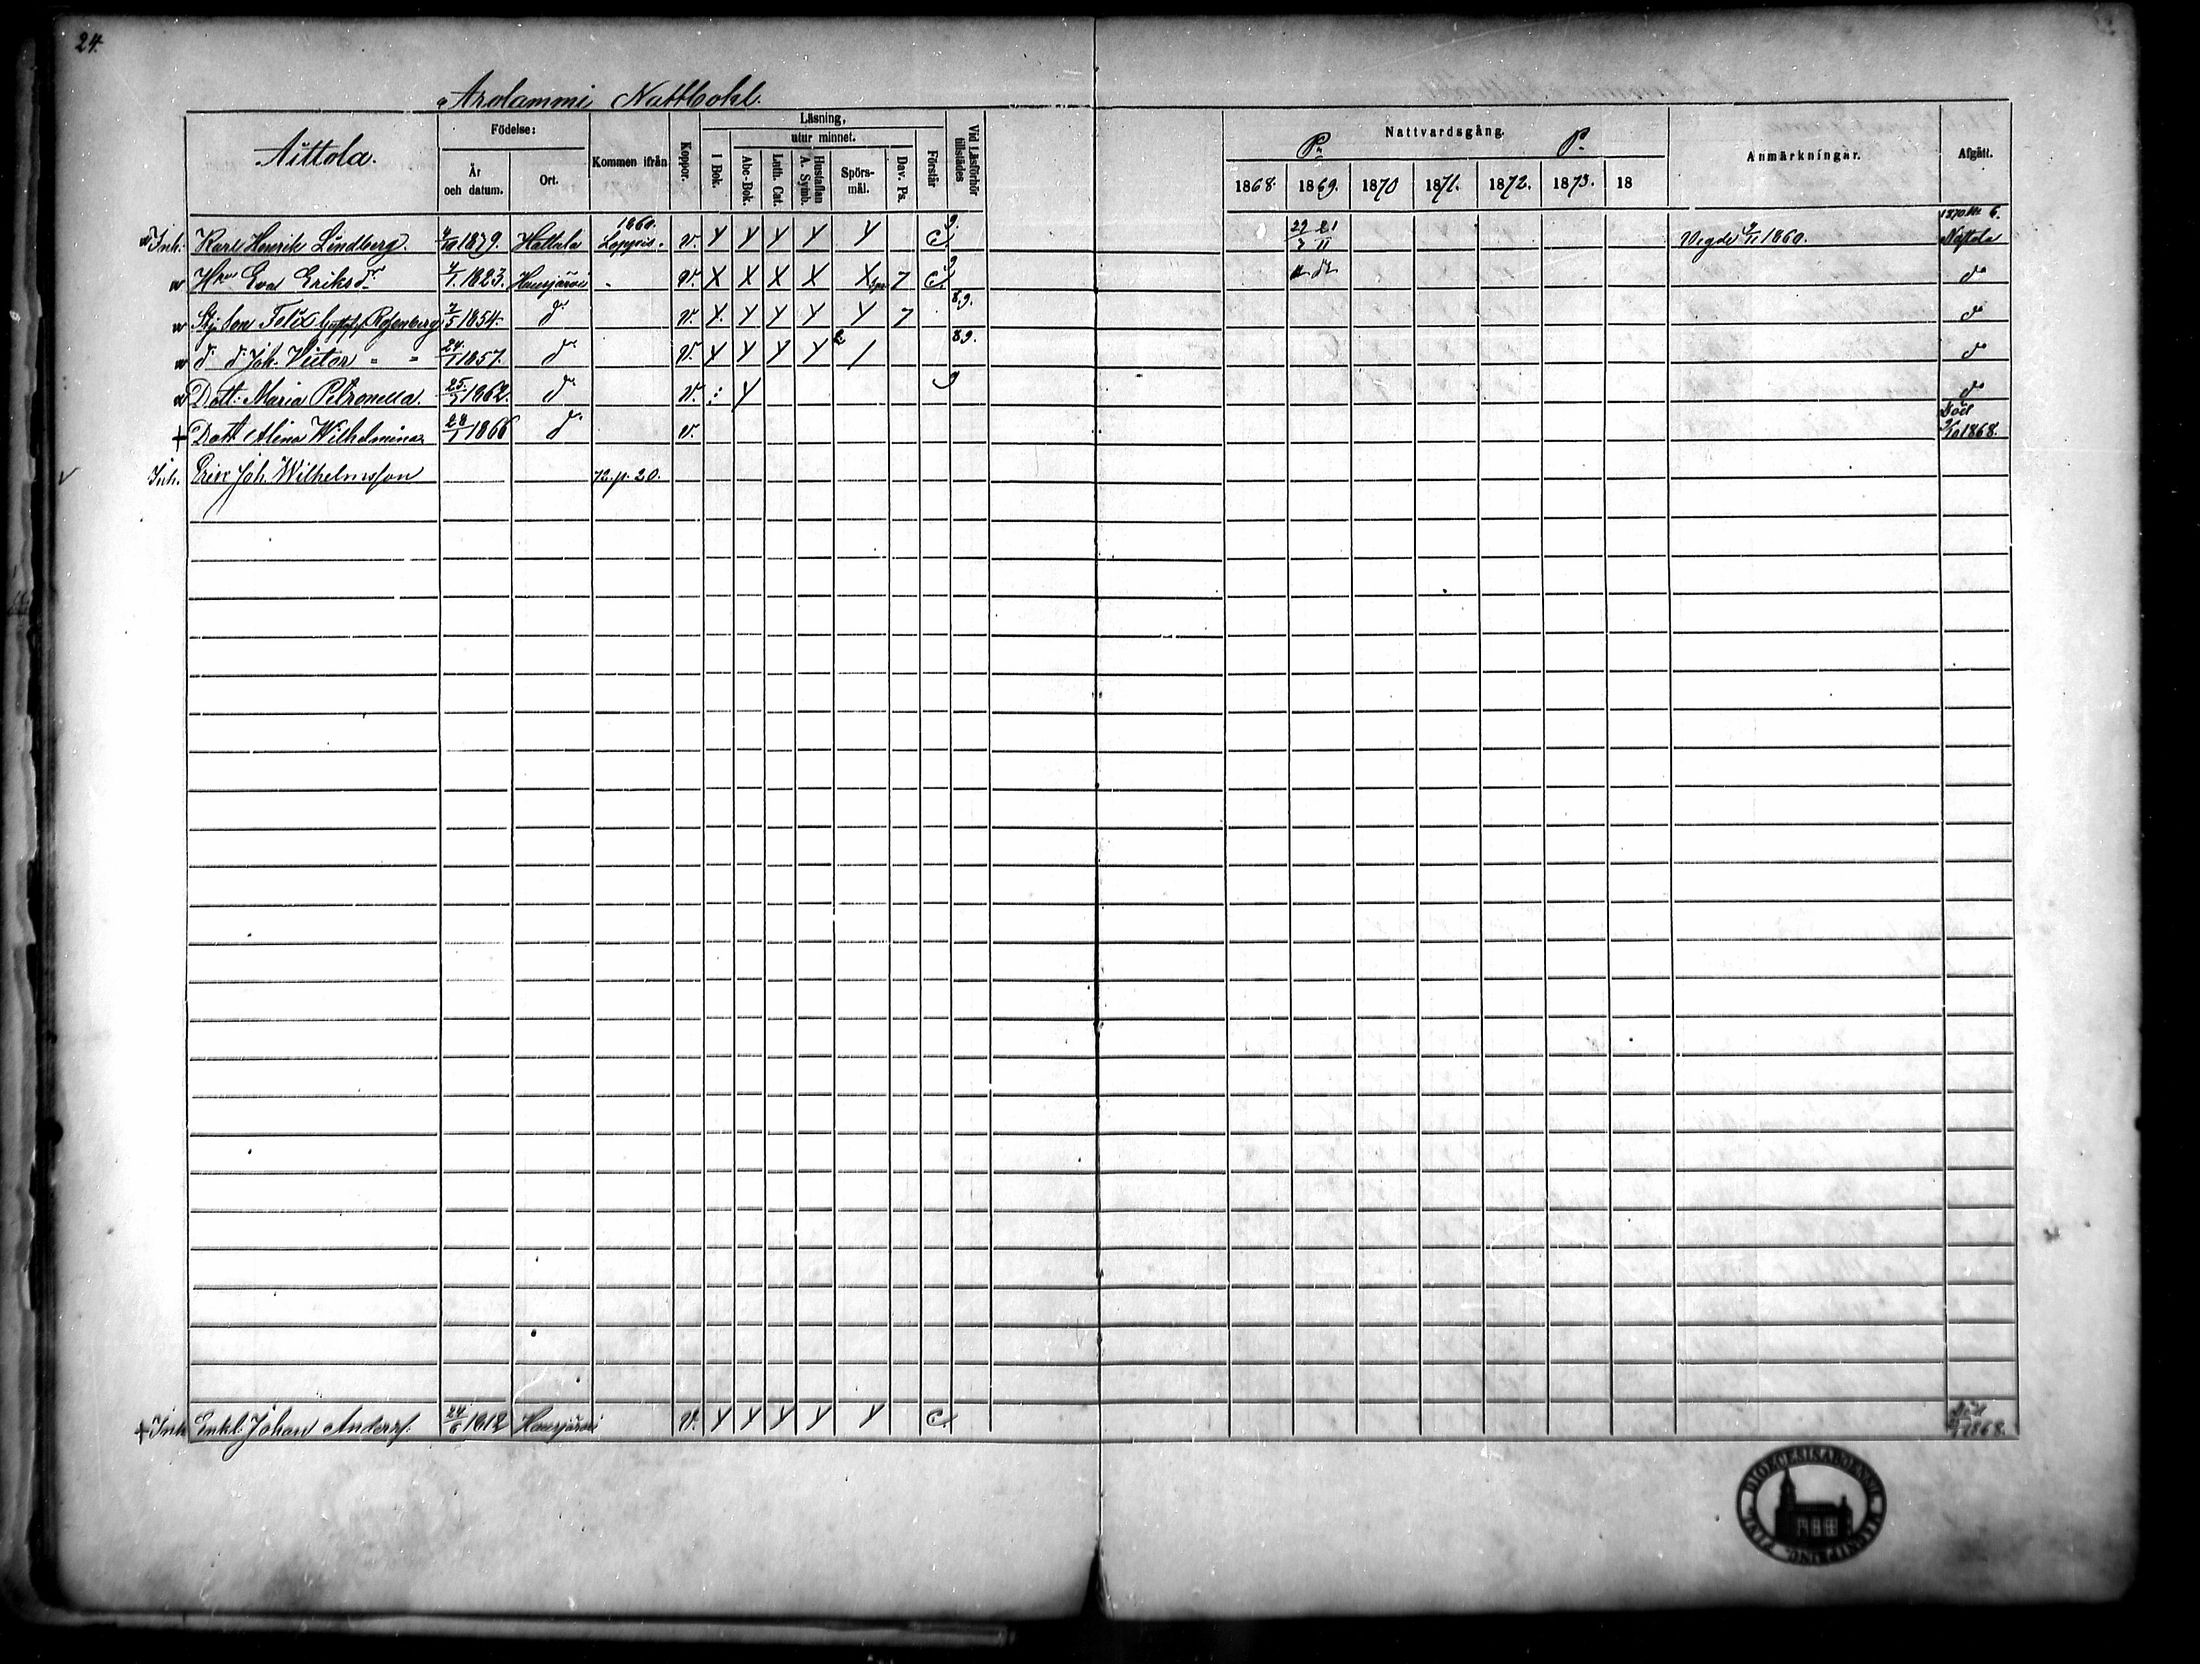 24.
Arolammi Nattbohl.
Aittola.
Födelse:
År och datum.
Ort.
Kommen ifrån
Koppor.
Läsning,
utur minnet.
I Bok.
Abc-Bok.
Luth. Cat.
Hustaflan A. Symb.
Spörsmål.
Dav. Ps.
Förstår
Vid Läsförhör tillstädes
Nattvardsgång.
1868. 1869. 1870 1871. 1872. 1873. 18
Anmärkningar.
Afgått.
Inh. Karl Henrik Lindberg. 1879. Hattula 1860. Loppis. v. Y Y Y Y Y Vigde 1860.
Hru Eva Eriksdr 4/1 1823. Hausjärvi v. X X X X X 7 do
Sty. Son Felix Gustaf Rosenberg 2/5 1854. do v. Y Y Y Y Y 7 8.9. do
d. d. Joh. Victor " " 24/1 1857. do v. Y Y Y Y 8.9. do
Dott. Maria Petronella. 1862. do v. Y 9 do
+ Dott. Alina Wilhelmina 1866 do v. Död 1868.
Inh. Erik Joh. Wilhelmsson 72. p. 20.
+ Inh. Enkl. Johan Andersf. 24/6 1812 Hausjärvi v. Y Y Y Y Y Död 1868.
DIOECESIS ABOENSIS